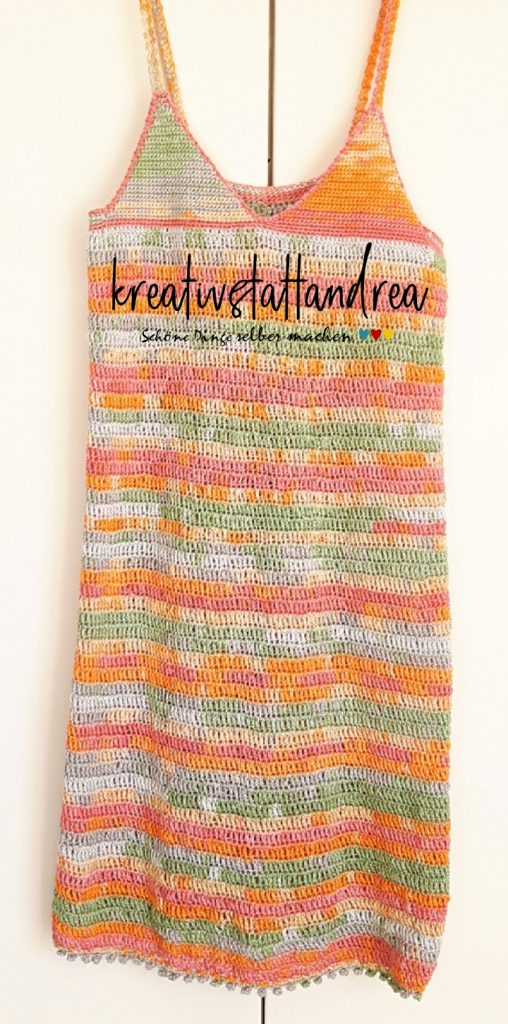 kreativstattandrea
Schöne Dinge selber machen